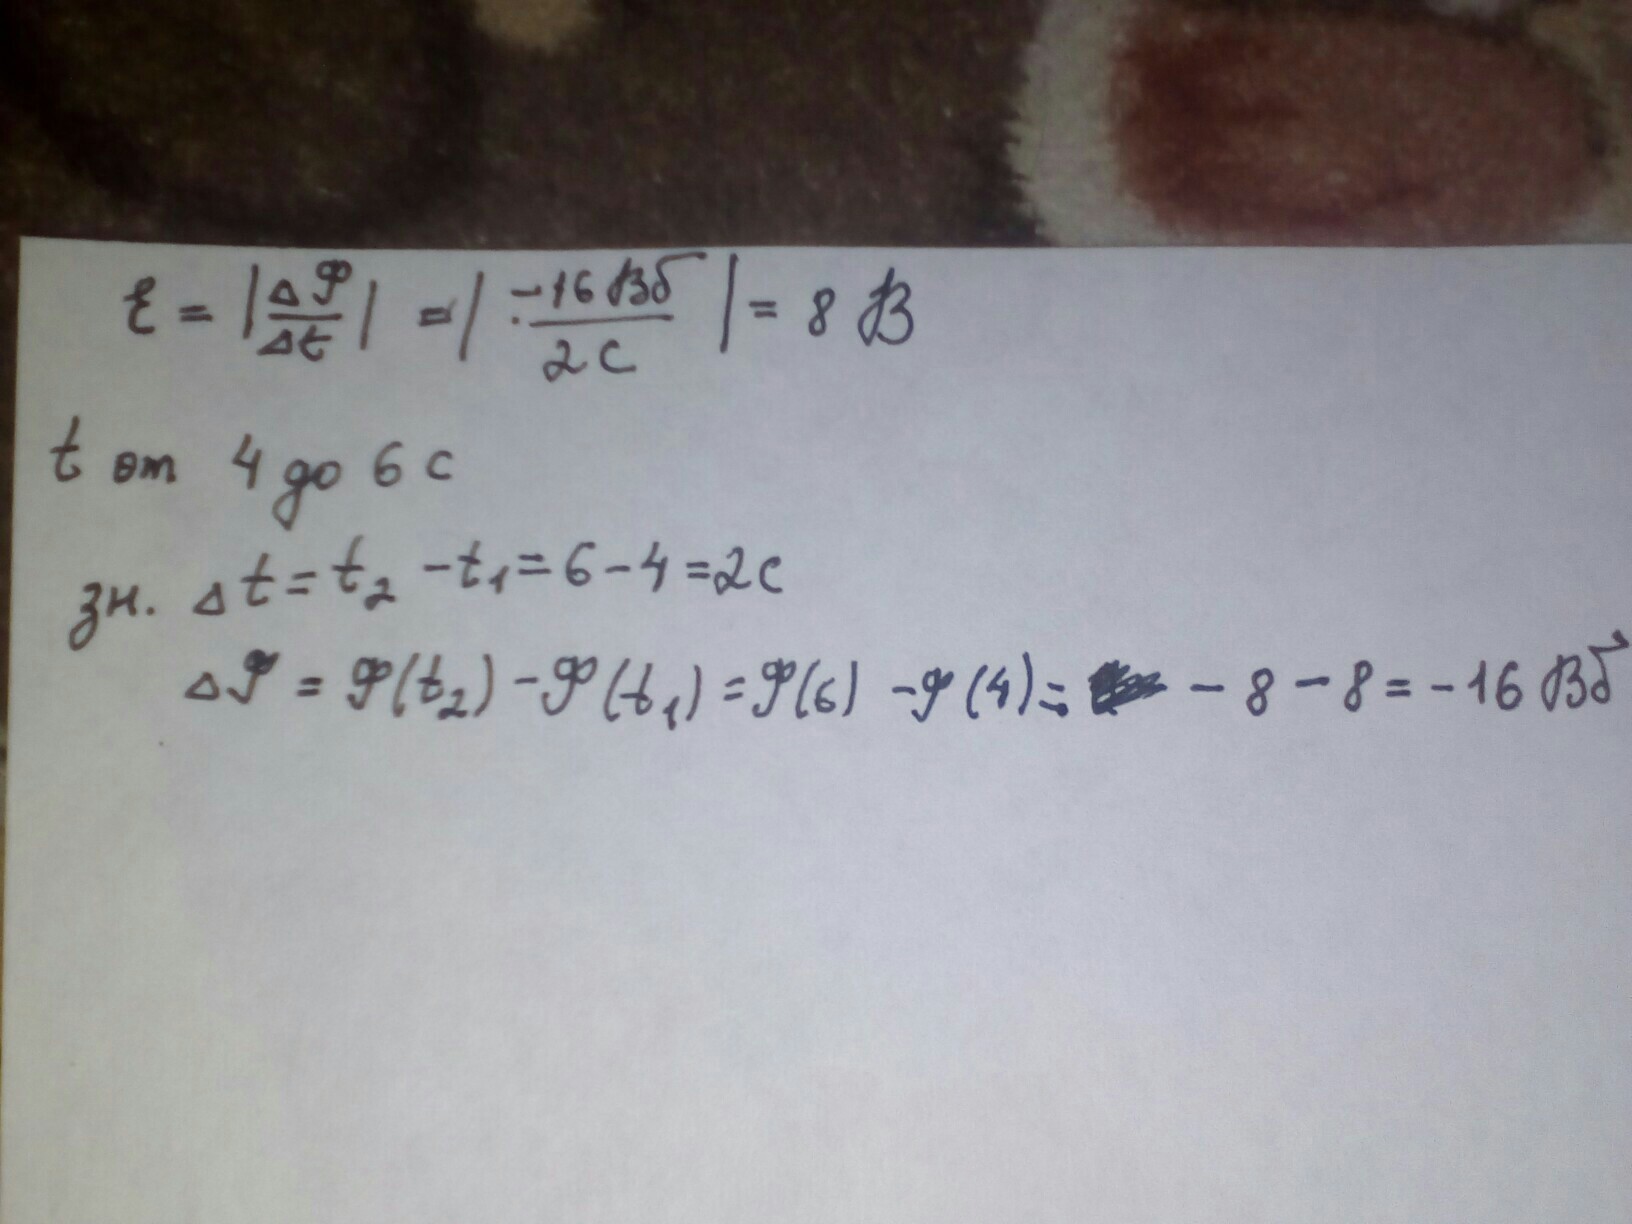 ε = |ΔФ/Δt| = |-16 Вб/2 с| = 8 В
t от 4 до 6 с
зн. Δt = t₂ - t₁ = 6 - 4 = 2 с
ΔФ = Ф(t₂) - Ф(t₁) = Ф(6) - Ф(4) = - 8 - 8 = -16 Вб